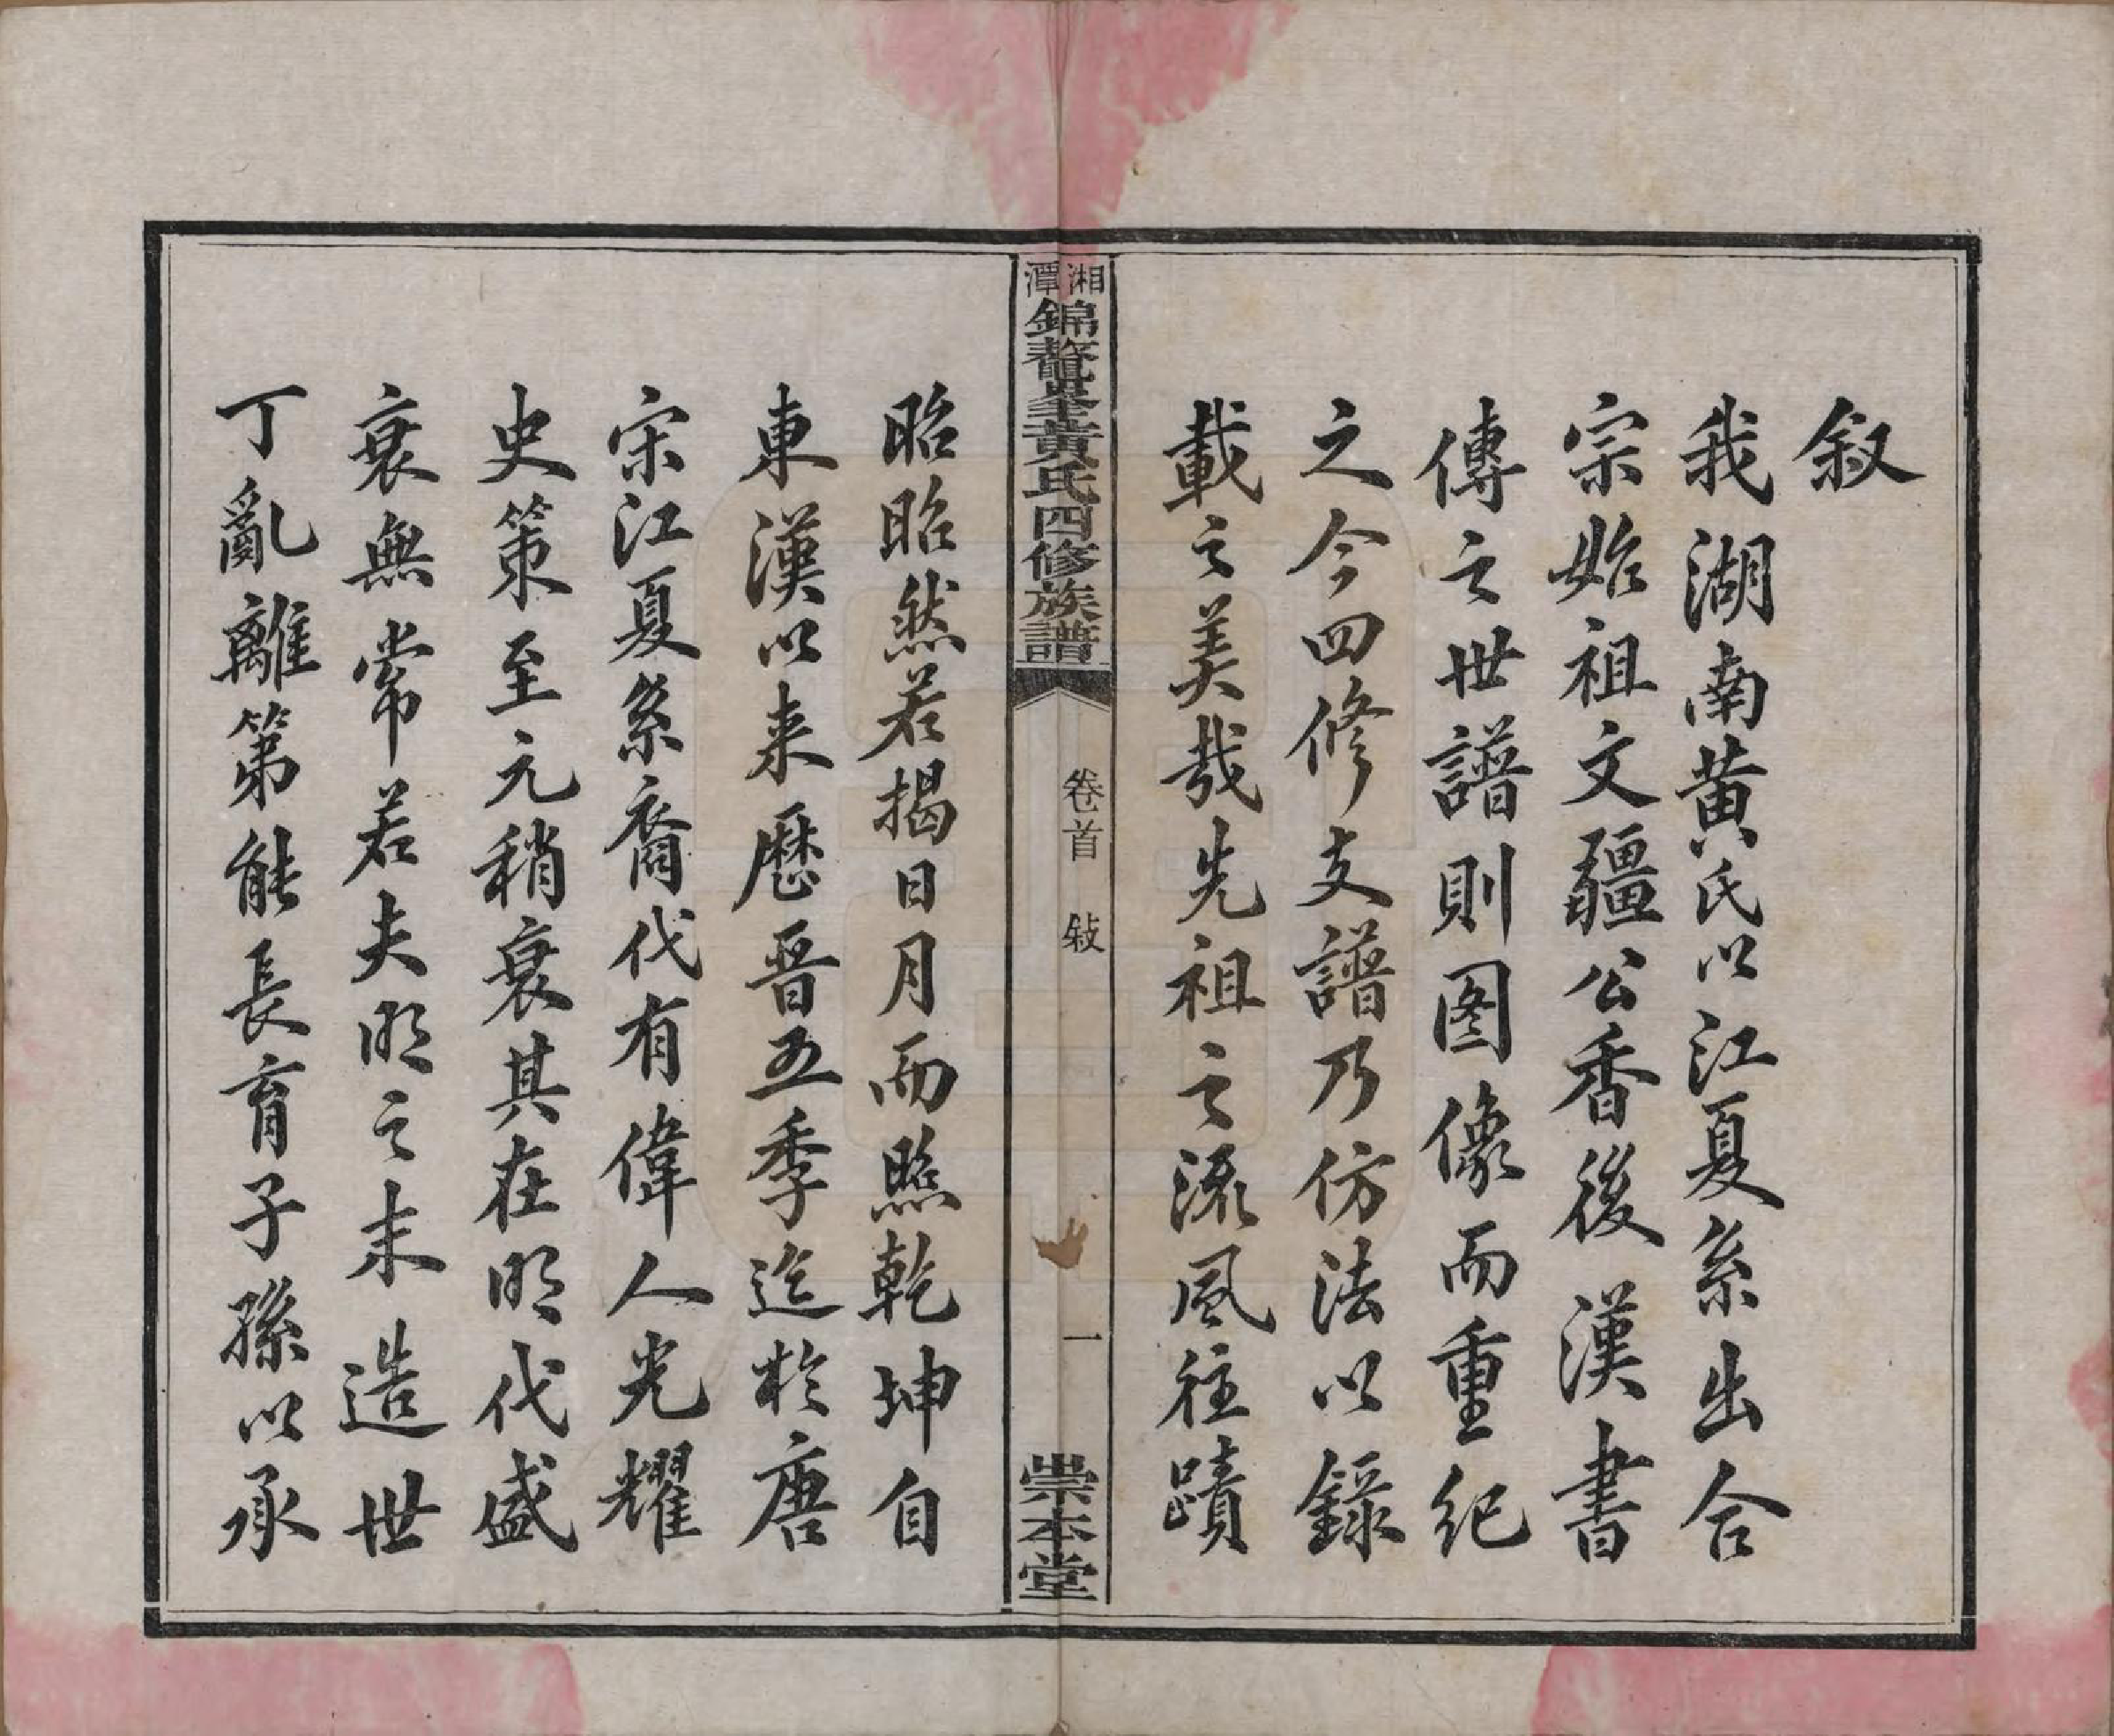 叙
我湖南黄氏以江夏系出合
宗始祖文疆公香後漢書
傳之世譜則图像而重纪
之今四修支譜乃仿法以錄
載之美哉先祖之流風往蹟
湘潭錦鼇黄氏四修族譜
卷首 敍
一
崇本堂
昭昭然若揭日月而照乾坤自
東漢以来歷晋五季迄於唐
宋江夏系裔代有偉人光耀
史策至元稍衰其在明代盛
衰無常若夫明之末造世
丁亂離第能長育子孫以承